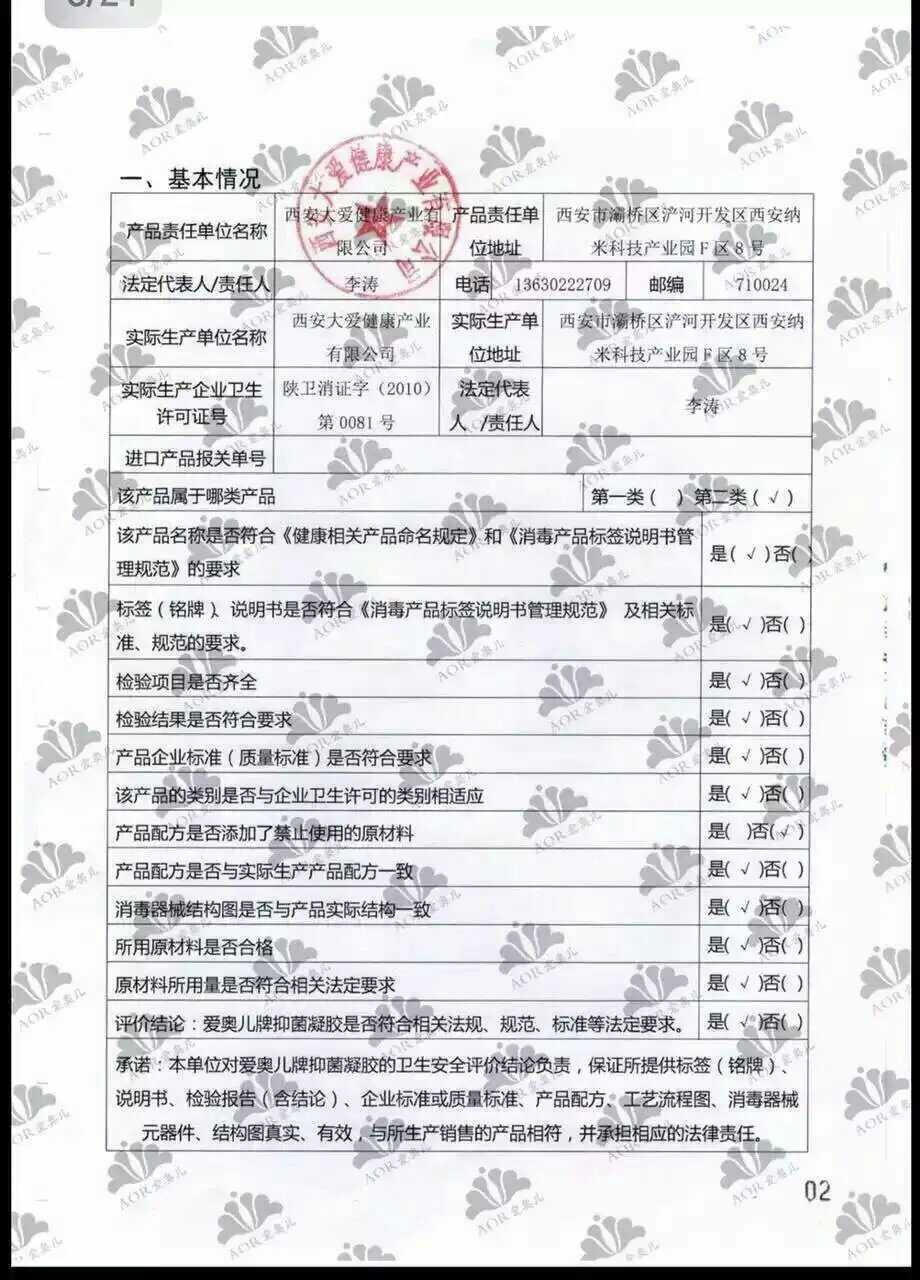 一、基本情况
产品责任单位名称 西安大爱健康产业有限公司 产品责任单位地址 西安市灞桥区浐河开发区西安纳米科技产业园F区8号
法定代表人/责任人 李涛 电话 13630222709 邮编 710024
实际生产单位名称 西安大爱健康产业有限公司 实际生产单位地址 西安市灞桥区浐河开发区西安纳米科技产业园F区8号
实际生产企业卫生许可证号 陕卫消证字（2010）第0081号 法定代表人 /责任人 李涛
进口产品报关单号
该产品属于哪类产品 第一类（ ）第二类（√）
该产品名称是否符合《健康相关产品命名规定》和《消毒产品标签说明书管
理规范》的要求 是(√)否( )
标签（铭牌）、说明书是否符合《消毒产品标签说明书管理规范》 及相关标
准、规范的要求。 是(√)否( )
检验项目是否齐全 是(√)否( )
检验结果是否符合要求 是(√)否( )
产品企业标准（质量标准）是否符合要求 是(√)否( )
该产品的类别是否与企业卫生许可的类别相适应 是(√)否( )
产品配方是否添加了禁止使用的原材料 是( )否(√)
产品配方是否与实际生产产品配方一致 是(√)否( )
消毒器械结构图是否与产品实际结构一致 是(√)否( )
所用原材料是否合格 是(√)否( )
原材料所用量是否符合相关法定要求 是(√)否( )
评价结论：爱奥儿牌抑菌凝胶是否符合相关法规、规范、标准等法定要求。 是(√)否( )
承诺：本单位对爱奥儿牌抑菌凝胶的卫生安全评价结论负责，保证所提供标签（铭牌）、
说明书、检验报告（含结论）、企业标准或质量标准、产品配方、工艺流程图、消毒器械
元器件、结构图真实、有效，与所生产销售的产品相符，并承担相应的法律责任。
02
西安大爱健康产业有限公司
AOR爱奥儿